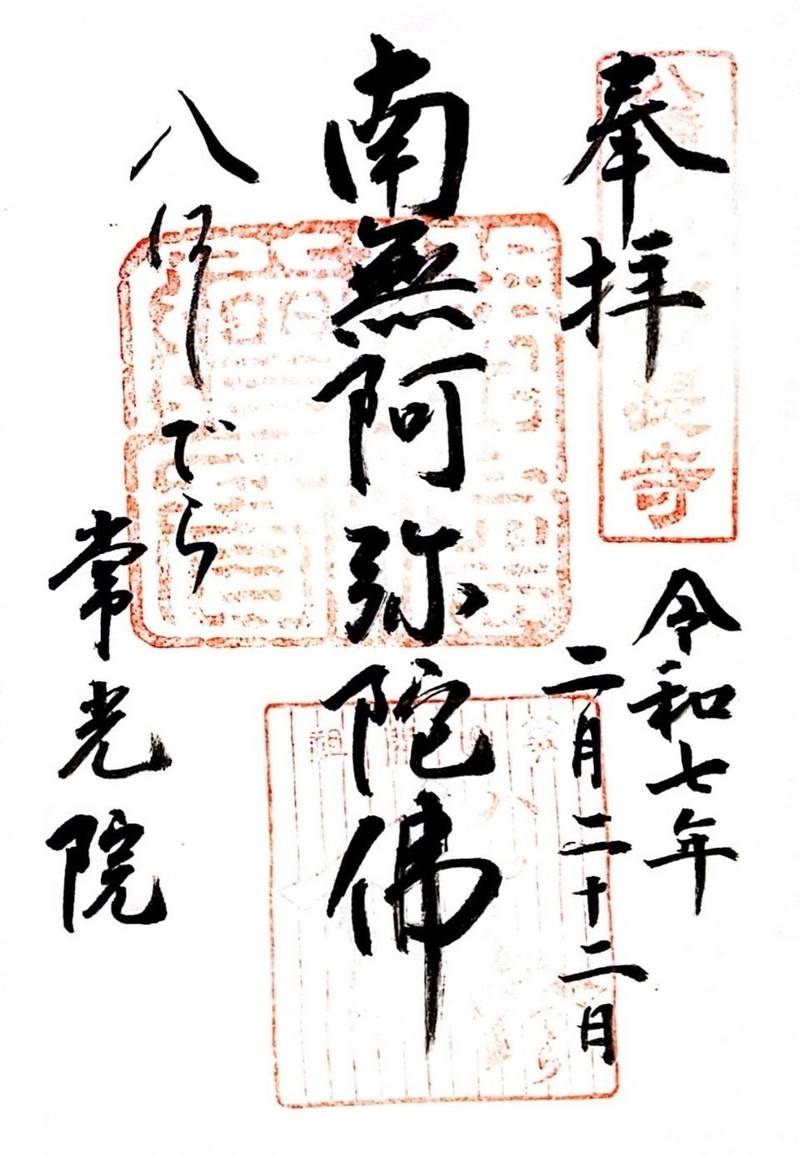 奉拝
提寺
令和七年
二月二十二日
南無阿弥陀佛
八はしでら
常光院